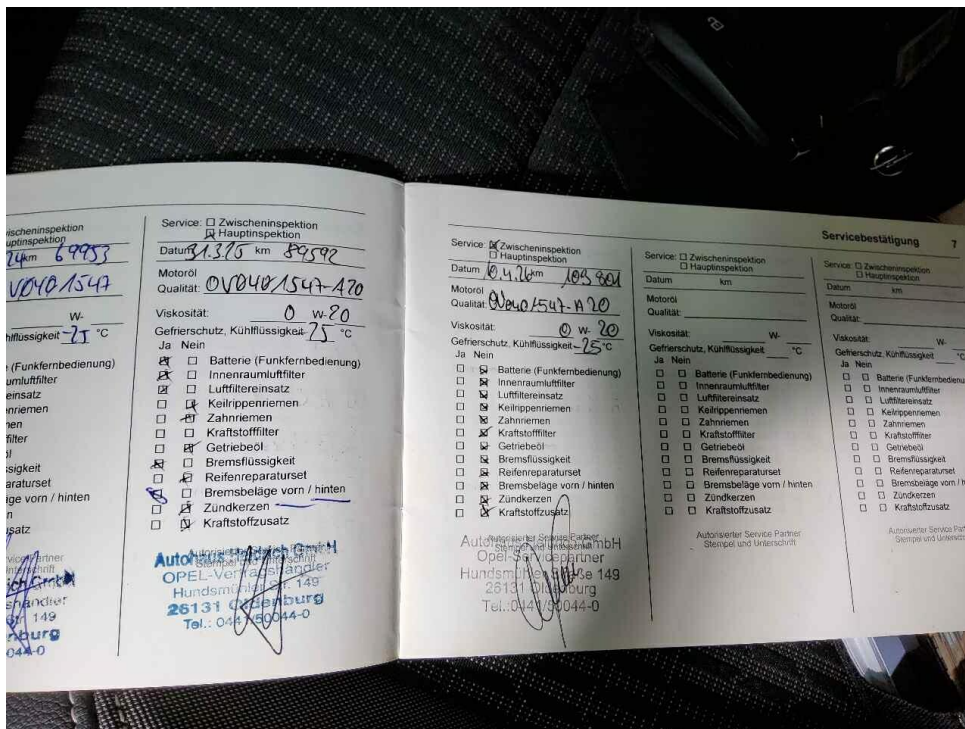 Zwischeninspektion
Hauptinspektion
24 km 69953
OV0401547
W-
Kühlflüssigkeit -25 °C
(Funkfernbedienung)
Innenraumluftfilter
Service: Zwischeninspektion
Hauptinspektion
Datum 31.3.25 km 89592
Motoröl
Qualität: OV0401547-A20
Viskosität: 0 W-20
Gefrierschutz, Kühlflüssigkeit -25 °C
Ja Nein
Batterie (Funkfernbedienung)
Innenraumluftfilter
Luftfiltereinsatz
Keilrippenriemen
Zahnriemen
Kraftstofffilter
Getriebeöl
Bremsflüssigkeit
Reifenreparaturset
Bremsbeläge vorn / hinten
Zündkerzen
Kraftstoffzusatz
Autorisierter Service Partner
Stempel und Unterschrift
Autohaus GmbH
OPEL-Vertragshändler
Hundsmühler Str. 149
26131 Oldenburg
Tel.: 0441/50044-0
Servicebestätigung 7
Service: Zwischeninspektion
Hauptinspektion
Datum 10.4.26 km 109801
Motoröl
Qualität: OV0401547-A20
Viskosität: 0 W-20
Gefrierschutz, Kühlflüssigkeit -25 °C
Ja Nein
Batterie (Funkfernbedienung)
Innenraumluftfilter
Luftfiltereinsatz
Keilrippenriemen
Zahnriemen
Kraftstofffilter
Getriebeöl
Bremsflüssigkeit
Reifenreparaturset
Bremsbeläge vorn / hinten
Zündkerzen
Kraftstoffzusatz
Autorisierter Service Partner
Stempel und Unterschrift
GmbH
Opel-Servicepartner
Hundsmühler Straße 149
26131 Oldenburg
Tel.: 0441/50044-0
Service: Zwischeninspektion
Hauptinspektion
Datum km
Motoröl
Qualität:
Viskosität: W-
Gefrierschutz, Kühlflüssigkeit °C
Ja Nein
Batterie (Funkfernbedienung)
Innenraumluftfilter
Luftfiltereinsatz
Keilrippenriemen
Zahnriemen
Kraftstofffilter
Getriebeöl
Bremsflüssigkeit
Reifenreparaturset
Bremsbeläge vorn / hinten
Zündkerzen
Kraftstoffzusatz
Autorisierter Service Partner
Stempel und Unterschrift
Service: Zwischeninspektion
Hauptinspektion
Datum km
Motoröl
Qualität:
Viskosität: W-
Gefrierschutz, Kühlflüssigkeit °C
Ja Nein
Batterie (Funkfernbedienu
Innenraumluftfilter
Luftfiltereinsatz
Keilrippenriemen
Zahnriemen
Kraftstofffilter
Getriebeöl
Bremsflüssigkeit
Reifenreparaturset
Bremsbeläge vorn / h
Zündkerzen
Kraftstoffzusatz
Autorisierter Service Par
Stempel und Unterschri